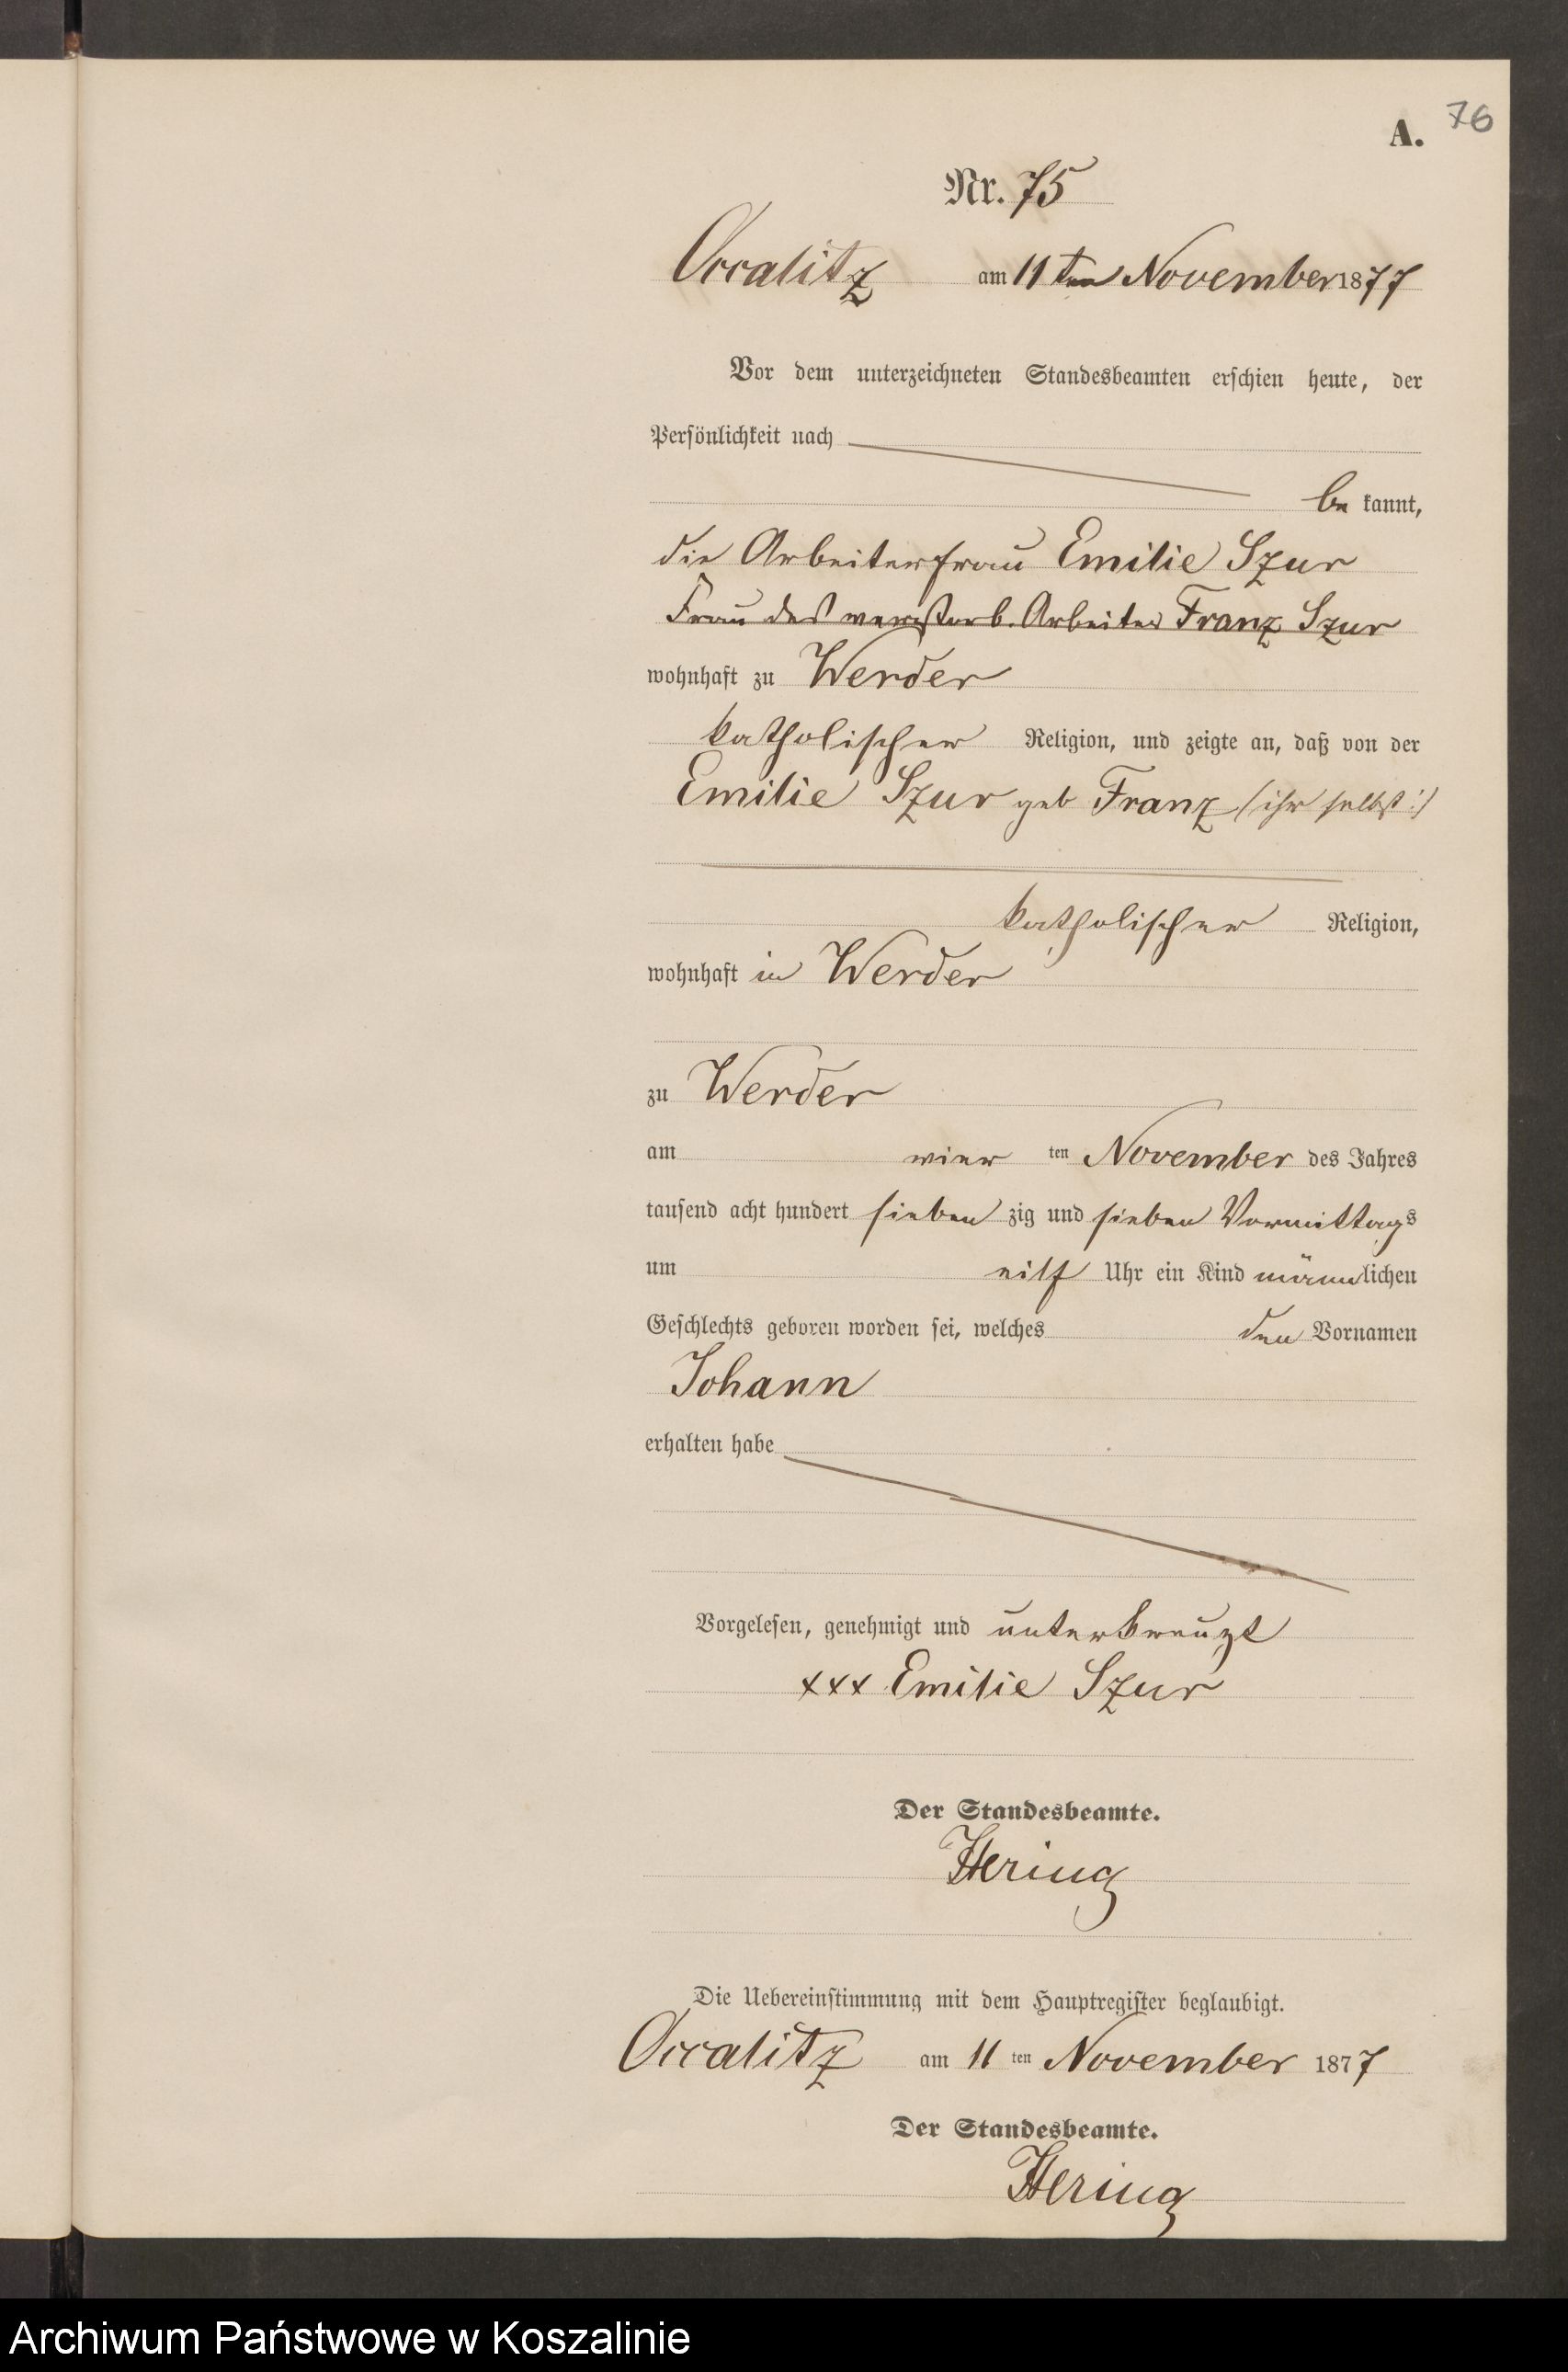 76
A.
Nr. 75
Occalitz am 11ten November 1877
Vor dem unterzeichneten Standesbeamten erschien heute, der
Persönlichkeit nach
be kannt,
die Arbeiterfrau Emilie Szur
Frau des verstorb. Arbeiter Franz Szur
wohnhaft zu Werder
katholischer Religion, und zeigte an, daß von der
Emilie Szur geb Franz (ihr selbst:)
katholischer Religion,
wohnhaft in Werder
zu Werder
am vier ten November des Jahres
tausend acht hundert sieben zig und sieben Vormittags
um eilf Uhr ein Kind männlichen
Geschlechts geboren worden sei, welches den Vornamen
Johann
erhalten habe
Vorgelesen, genehmigt und unterkreuzt
xxx Emilie Szur
Der Standesbeamte.
Hering
Die Uebereinstimmung mit dem Hauptregister beglaubigt.
Occalitz am 11 ten November 1877
Der Standesbeamte.
Hering
Archiwum Państwowe w Koszalinie